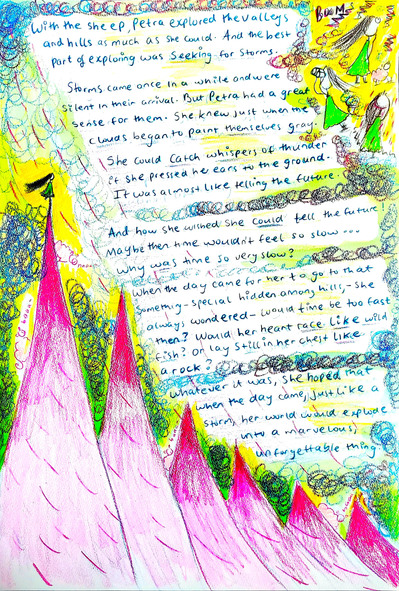 BOOM
With the sheep, Petra explored the valleys
and hills as much as she could. And the best
part of exploring was Seeking for Storms.
Storms came once in a while and were
silent in their arrival. But Petra had a great
sense for them. She knew just when the
clouds began to paint themselves gray.
She could catch whispers of thunder
if she pressed he ears to the ground.
It was almost like telling the future.
And how she wished she could tell the future
Maybe then time wouldn't feel so slow...
Why was time so very slow?
When the day came for her to go to that
something-special hidden among hills, she
always wondered- would time be too fast
then? Would her heart race like wild
fish? Or lay still in her chest like
a rock?
Whatever it was, she hoped that
when the day came, just like a
storm, her world would explode
into a marvelous,
unforgettable thing.